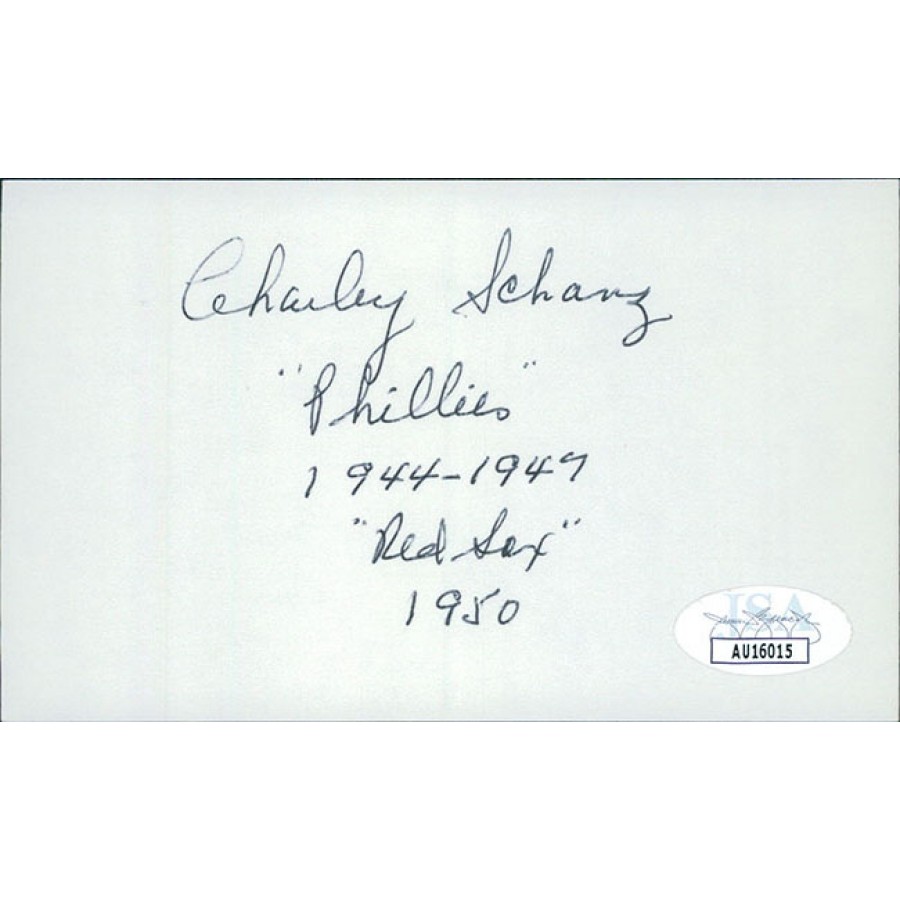 Charley Schanz
"Phillies"
1944-1947
"Red Sox"
1950
JSA
AU16015